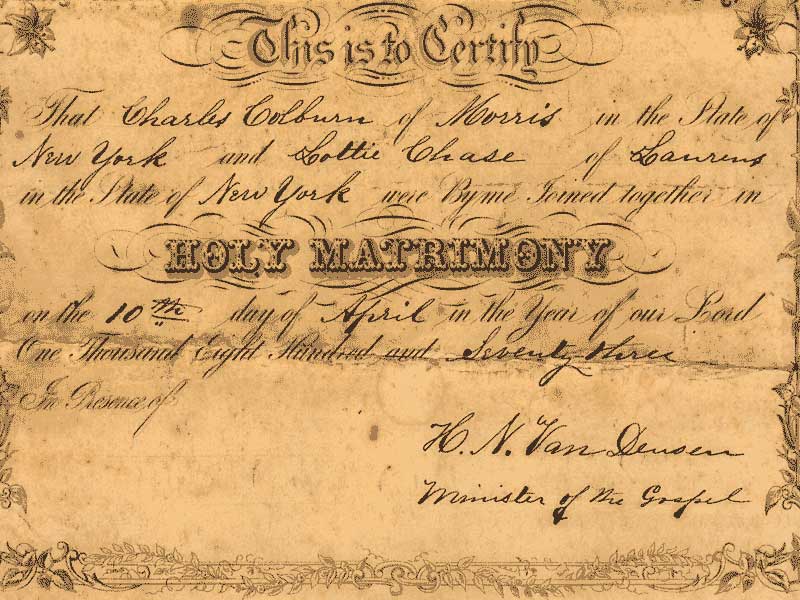 This is to Certify
That Charles Colburn of Morris in the State of
New York and Lottie Chase of Laurens
in the State of New York were By me Joined together in
HOLY MATRIMONY
on the 10th day of April in the Year of our Lord
One Thousand Eight Hundred and Seventy three
In Presence of
H. N. Van Deusen
Minister of the Gospel